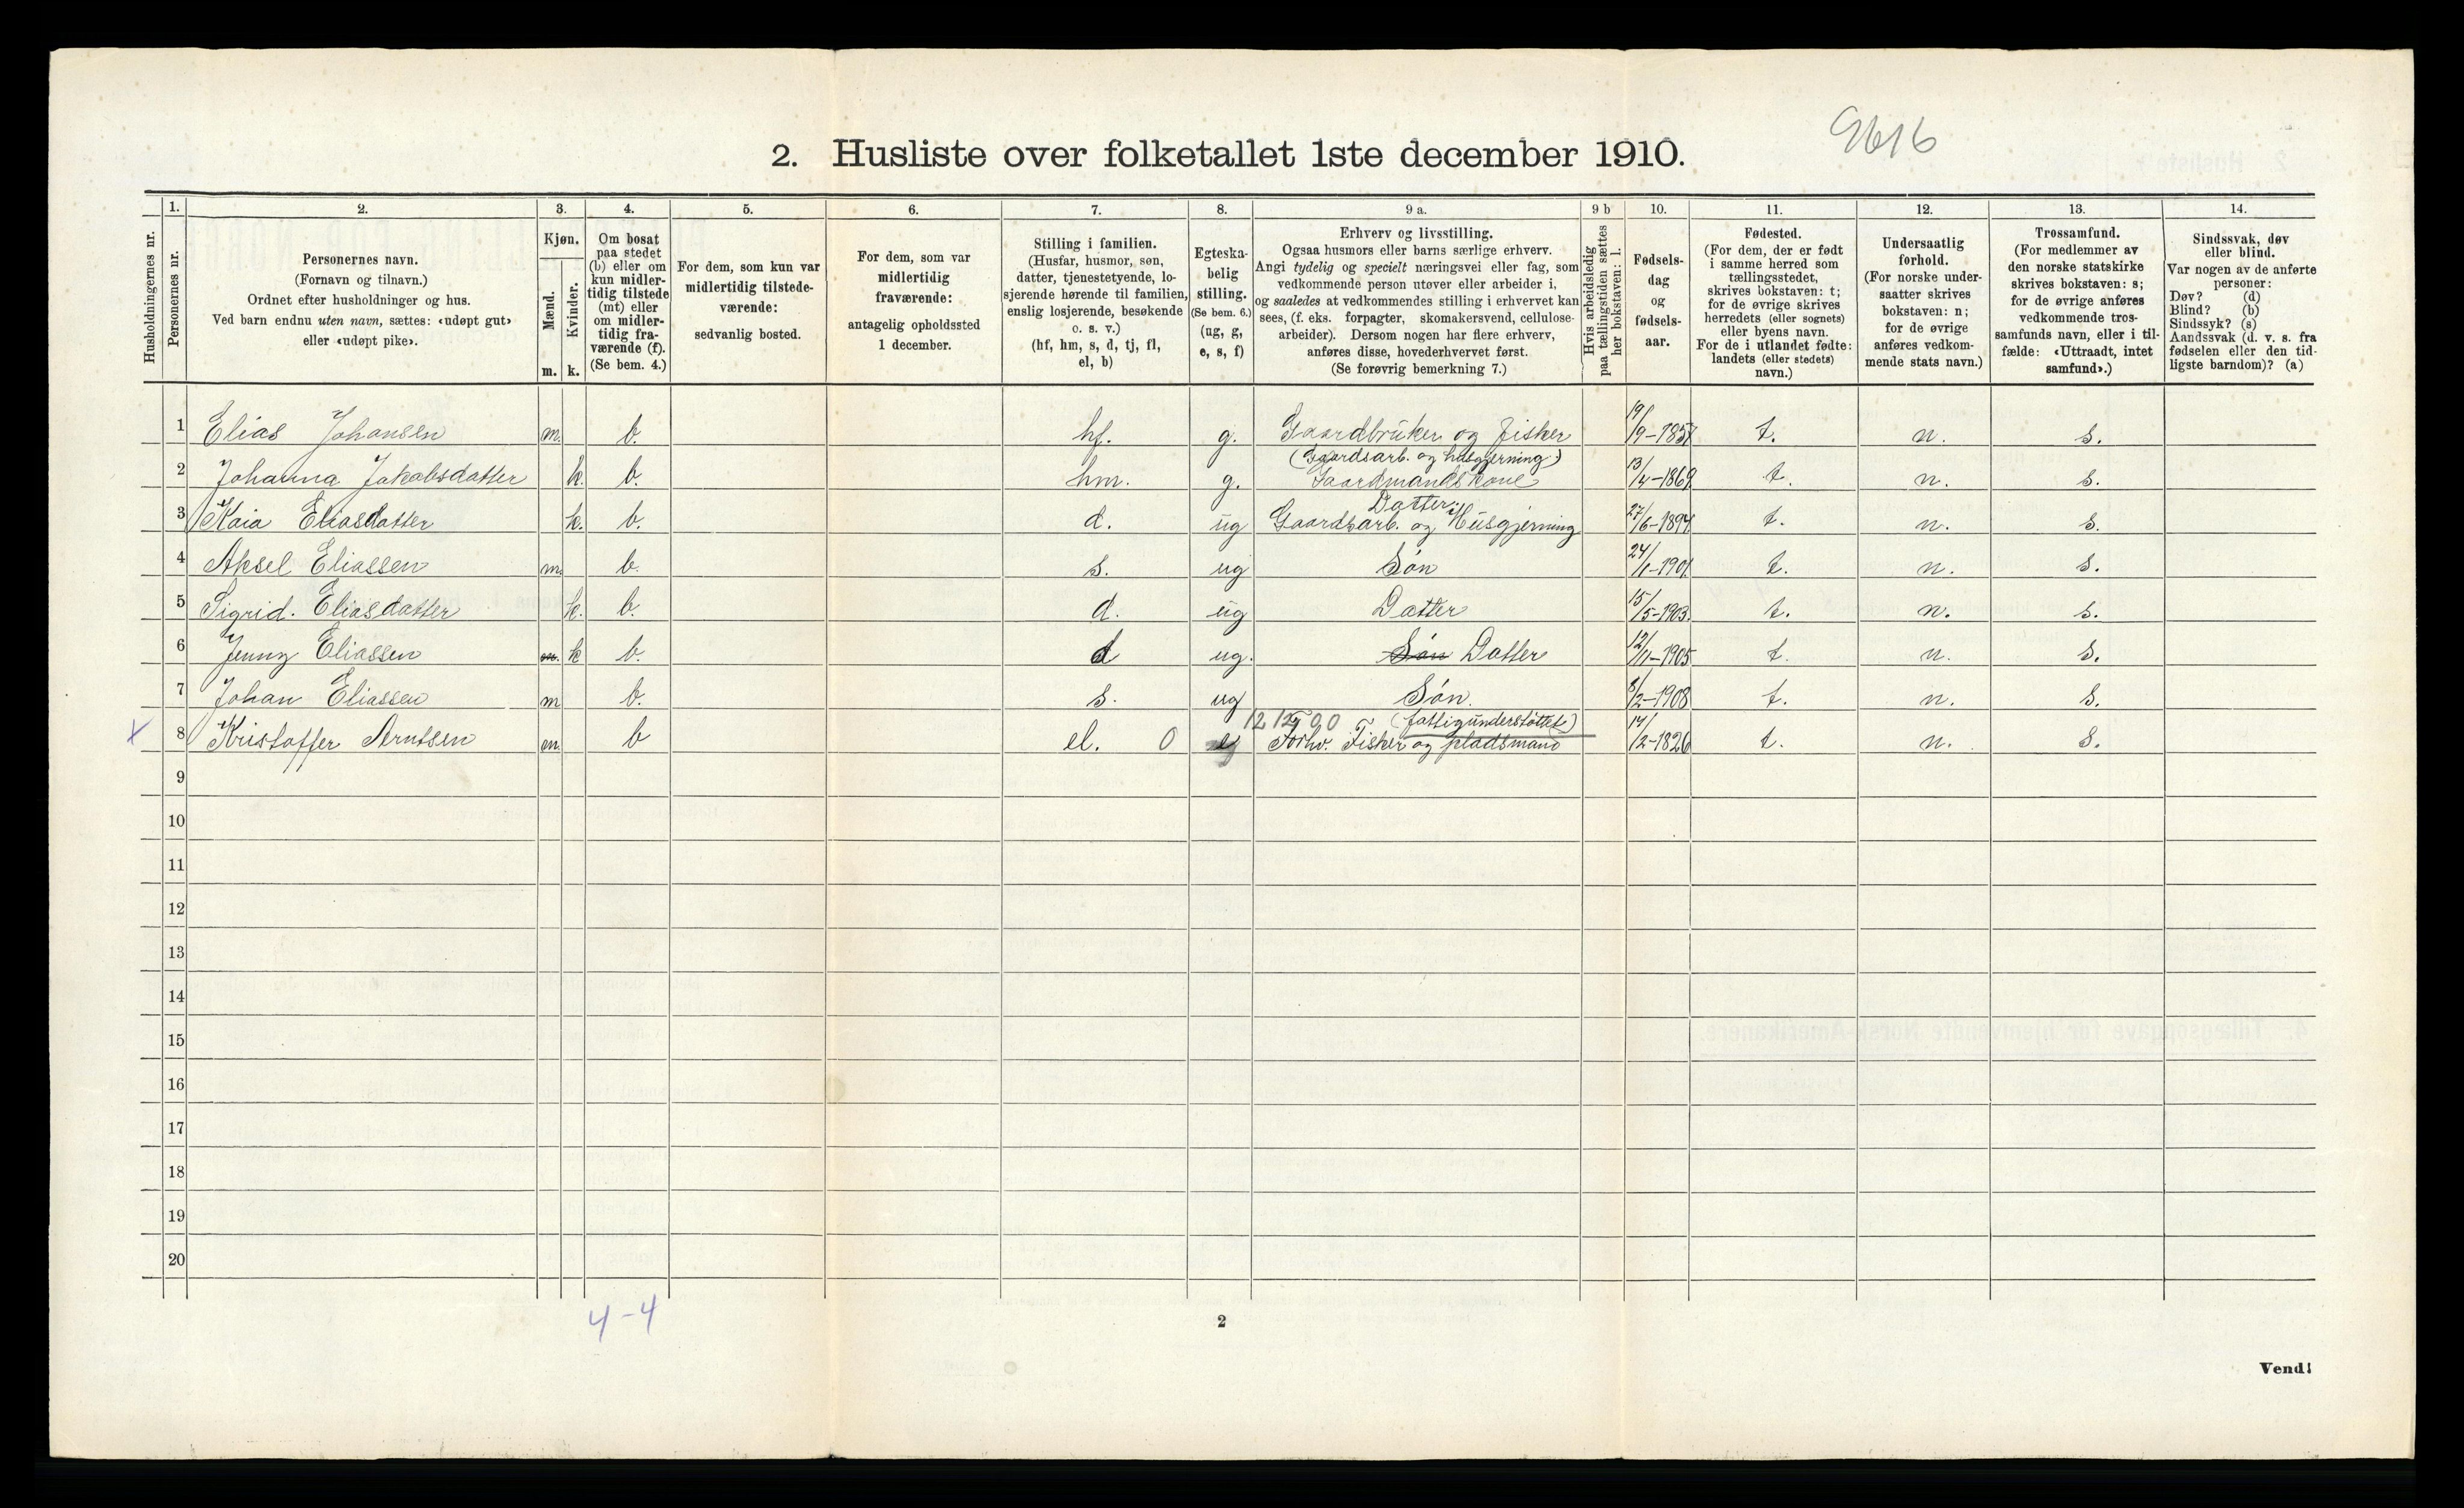 9616
2. Husliste over folketallet 1ste december 1910.
Husholdningernes nr.
1.
Personernes nr.
2.
Personernes navn.
(Fornavn og tilnavn.)
Ordnet efter husholdninger og hus.
Ved barn endnu uten navn, sættes: «udøpt gut»
eller «udøpt pike».
3.
Kjøn.
Mænd.
Kvinder.
m. k.
4.
Om bosat
paa stedet
(b) eller om
kun midler-
tidig tilstede
(mt) eller
om midler-
tidig fra-
værende (f).
(Se bem. 4.)
5.
For dem, som kun var
midlertidig tilstede-
værende:
sedvanlig bosted.
6.
For dem, som var
midlertidig
fraværende:
antagelig opholdssted
1 december.
7.
Stilling i familien.
(Husfar, husmor, søn,
datter, tjenestetyende, lo-
sjerende hørende til familien,
enslig losjerende, besøkende
o. s. v.)
(hf, hm, s, d, tj, fl,
el, b)
8.
Egteska-
belig
stilling.
(Se bem. 6.)
(ug, g,
e, s, f)
9 a.
Erhverv og livsstilling.
Ogsaa husmors eller barns særlige erhverv.
Angi tydelig og specielt næringsvei eller fag, som
vedkommende person utøver eller arbeider i,
og saaledes at vedkommendes stilling i erhvervet kan
sees, (f. eks. forpagter, skomakersvend, cellulose-
arbeider). Dersom nogen har flere erhverv,
anføres disse, hovederhvervet først.
(Se forøvrig bemerkning 7.)
9 b
Hvis arbeidsledig
paa tællingstiden sættes
her bokstaven: l.
10.
Fødsels-
dag
og
fødsels-
aar.
11.
Fødested.
(For dem, der er født
i samme herred som
tællingsstedet,
skrives bokstaven: t;
for de øvrige skrives
herredets (eller sognets)
eller byens navn.
For de i utlandet fødte:
landets (eller stedets)
navn.)
12.
Undersaatlig
forhold.
(For norske under-
saatter skrives
bokstaven: n;
for de øvrige
anføres vedkom-
mende stats navn.)
13.
Trossamfund.
(For medlemmer av
den norske statskirke
skrives bokstaven: s;
for de øvrige anføres
vedkommende tros-
samfunds navn, eller i til-
fælde: «Uttraadt, intet
samfund».)
14.
Sindssvak, døv
eller blind.
Var nogen av de anførte
personer:
Døv? (d)
Blind? (b)
Sindssyk? (s)
Aandssvak (d. v. s. fra
fødselen eller den tid-
ligste barndom)? (a)
1 Elias Johansen m. b. hf. g. Gaardbruker og fisker 19/9-1857 t. n. s.
2 Johanna Jakobsdatter k. b. hm. g. (Gaardsarb. og husgjerning) Gaardmandskone 13/4-1869 t. n. s.
3 Kaia Eliasdatter k. b. d. ug Datter Gaardsarb. og Husgjerning 27/6-1894 t. n. s.
4 Aksel Eliassen m. b. s. ug Søn 24/1-1901 t. n. s.
5 Sigrid. Eliasdatter k. b. d. ug Datter 15/5-1903. t. n. s.
6 Jenny Eliassen m. k b. d ug. Søn Datter 12/11-1905 t. n. s.
7 Johan Eliassen m b. s. ug Søn. 8/2-1908 t. n. s.
12 12 00 (fattigunderstøttet)
x 8 Kristoffer Arntsen m b el. 0 Forhv. Fisker og pladsmand 14/2-1826 t. n. s.
9
10
11
12
13
14
15
16
17
18
19
20
4-4
2
Vend!